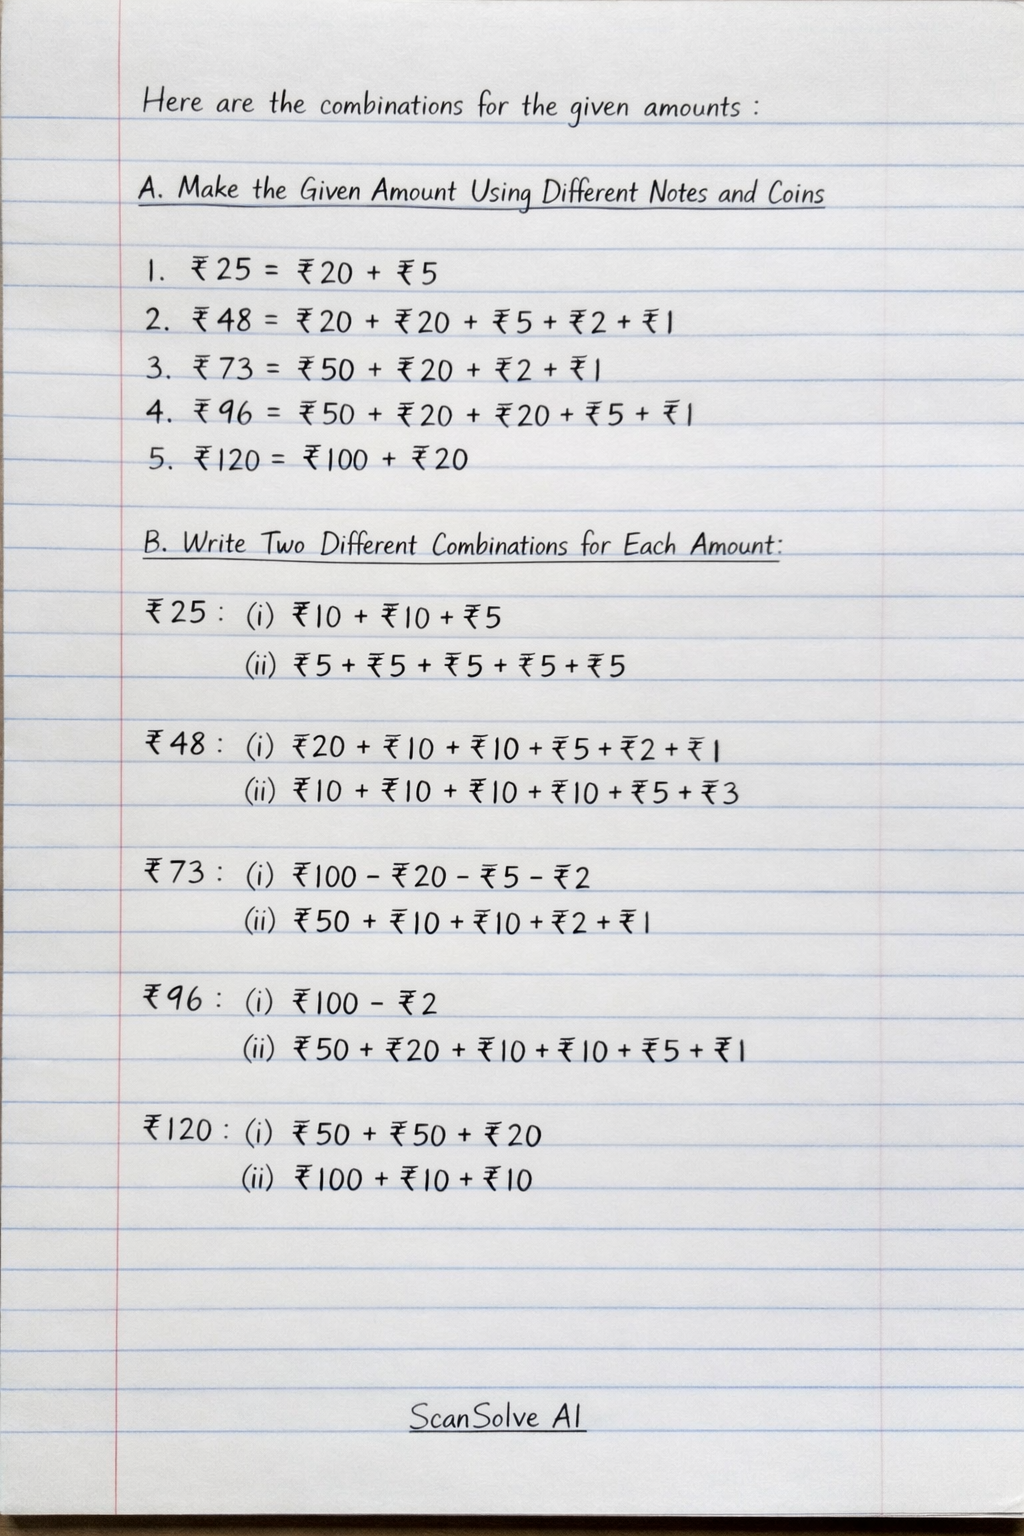 Here are the combinations for the given amounts :
A. Make the Given Amount Using Different Notes and Coins
1. ₹25 = ₹20 + ₹5
2. ₹48 = ₹20 + ₹20 + ₹5 + ₹2 + ₹1
3. ₹73 = ₹50 + ₹20 + ₹2 + ₹1
4. ₹96 = ₹50 + ₹20 + ₹20 + ₹5 + ₹1
5. ₹120 = ₹100 + ₹20
B. Write Two Different Combinations for Each Amount:
₹25 : (i) ₹10 + ₹10 + ₹5
(ii) ₹5 + ₹5 + ₹5 + ₹5 + ₹5
₹48 : (i) ₹20 + ₹10 + ₹10 + ₹5 + ₹2 + ₹1
(ii) ₹10 + ₹10 + ₹10 + ₹10 + ₹5 + ₹3
₹73 : (i) ₹100 - ₹20 - ₹5 - ₹2
(ii) ₹50 + ₹10 + ₹10 + ₹2 + ₹1
₹96 : (i) ₹100 - ₹2
(ii) ₹50 + ₹20 + ₹10 + ₹10 + ₹5 + ₹1
₹120 : (i) ₹50 + ₹50 + ₹20
(ii) ₹100 + ₹10 + ₹10
ScanSolve AI